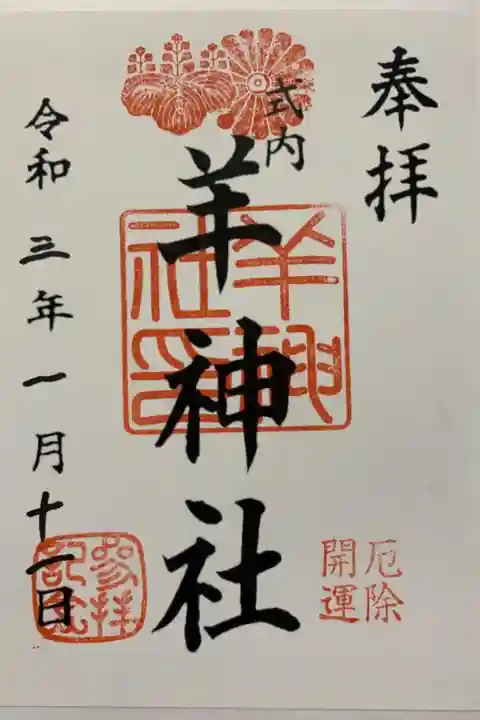 奉拝
式内
羊神社
羊神社印
厄除
開運
令和三年一月十一日
参拝記念